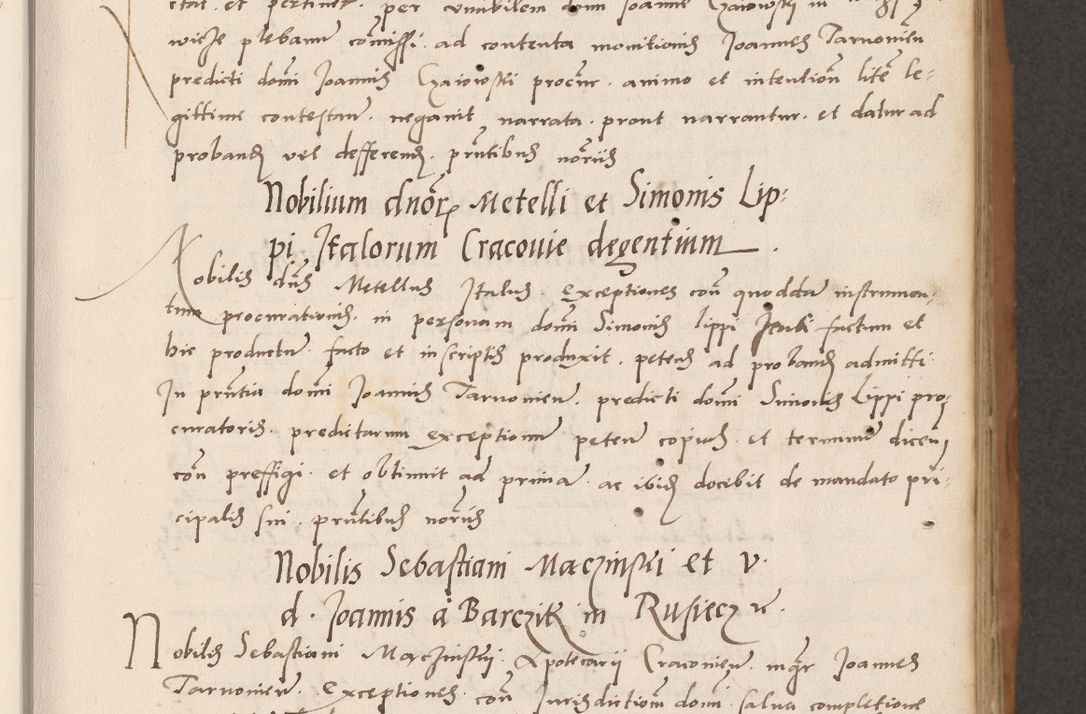 ritas et pertinet per venerabilem domi Joannis Gaiowski in
wicze plebanu comissi ad contenta monitionis Joannes Tarvonien
predicti domi Joannis Gaiowski procur animo et intention litē le-
gittime contestan negavit narrata prout narrantur et datur ad
proband vel defferend prntibus noriis
Nobilium dnor Metelli et Simonis Lip-
pi Italorum Cracovie degentium
Nobilis dns Metellus Italus Exceptiones con quoddā instrumen-
tum procurationis in personam domi Simonis Lippi Itali factum et
hic productu facto et in scriptis produxit petens ad proband admitti
In prntia domi Joannis Tarvonien predicti domi Simonis Lippi pro-
curatoris predictarum exceptionu peten copias et terminu dicen
con preffigi et obtinuit ad primā ac ibid docebit de mandato prī-
cipalis sui prntibus noriis
Nobilis Sebastiani Maczinski et v
d Joannis a Barczik in Rusiecz
Nobilis Sebastiani Maczinskij Apotecarii Cracovien mgr Joannes
Tarvonien Exceptiones con Jurisdiction domi salva completione